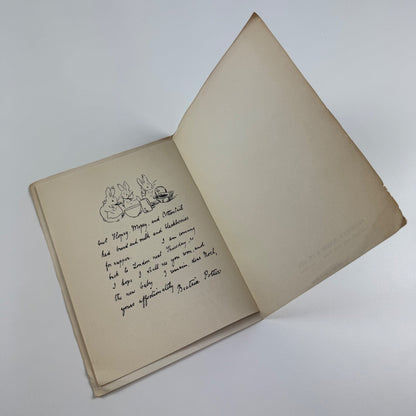 but Flopsy, Mopsy, and Cottontail
had bread and milk and blackberries
for supper.
I am coming
back to London next Thursday, so
I hope I shall see you soon, and
the new baby. I remain, dear Noel,
yours affectionately Beatrix Potter